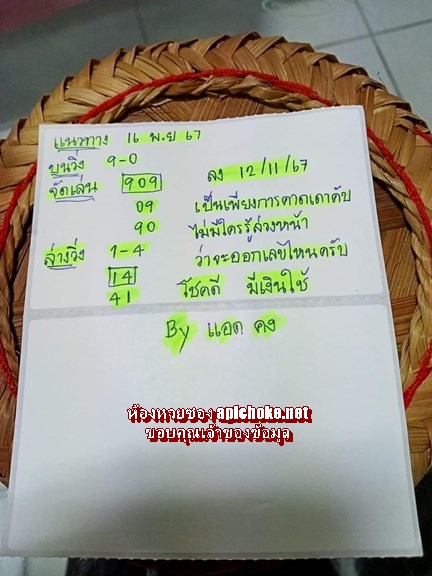 แนวทาง 16 พ.ย 67
บนวิ่ง 9-0
จัดเล่น 909 ลง 12/11/67
09 เป็นเพียงการคาดเดาคับ
90 ไม่มีใครรู้ล่วงหน้า
ล่างวิ่ง 1-4 ว่าจะออกเลขไหนครับ
14
41 โชคดี มีเงินใช้
By แอด คง
ห้องหวยซอง apichoke.net
ขอบคุณเจ้าของข้อมูล